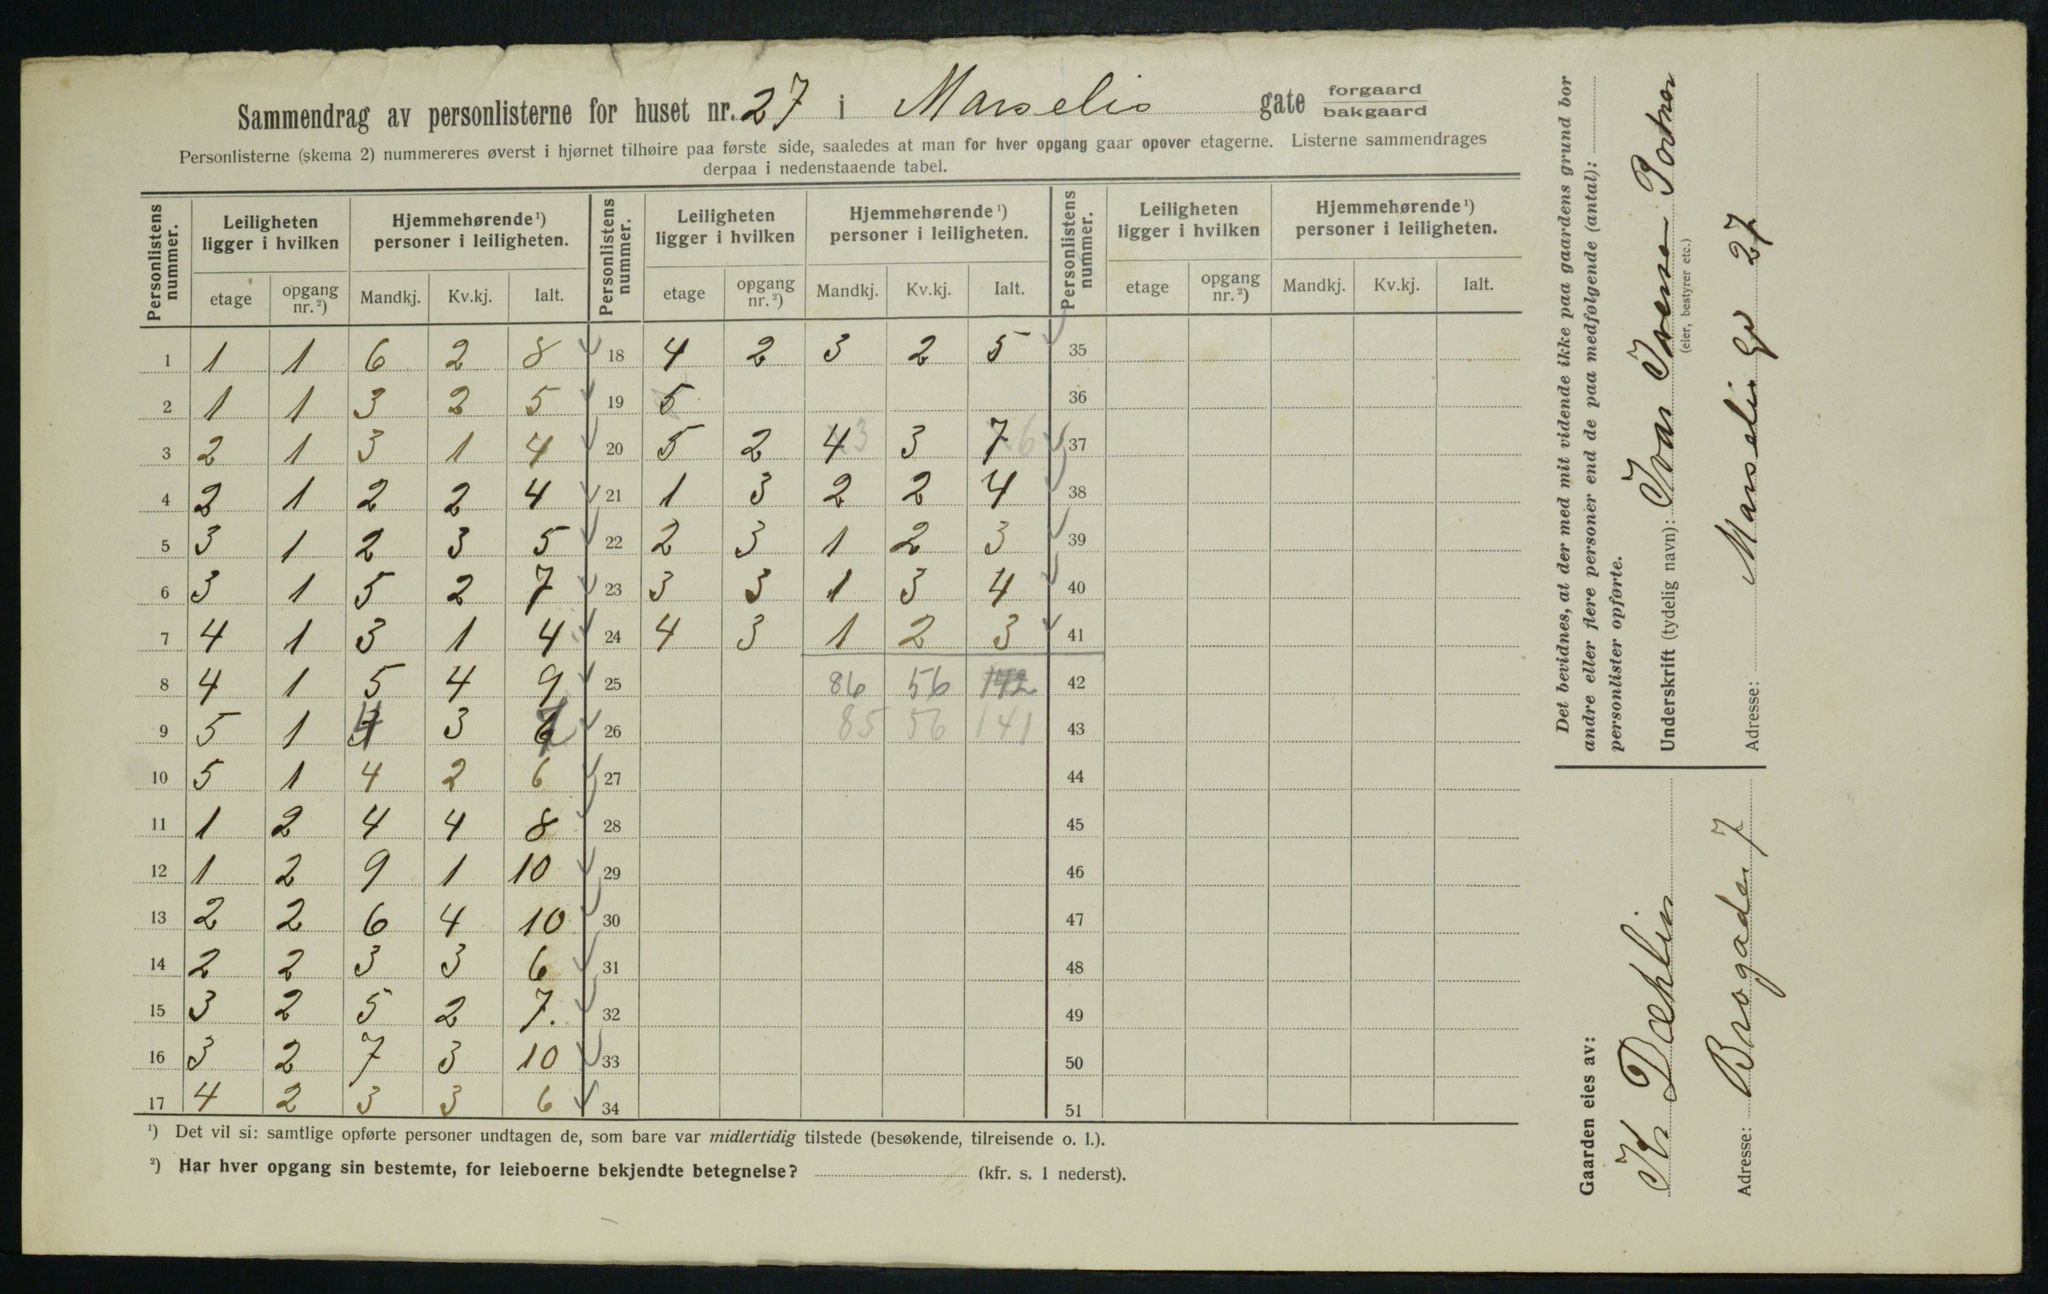 Sammendrag av personlisterne for huset nr. 27 i Marselis gate forgaard bakgaard
Personlisterne (skema 2) nummereres øverst i hjørnet tilhøire paa første side, saaledes at man for hver opgang gaar opover etagerne. Listerne sammendrages
derpaa i nedenstaaende tabel.
Personlistens nummer. Leiligheten ligger i hvilken Hjemmehørende ¹) personer i leiligheten. Personlistens nummer. Leiligheten ligger i hvilken Hjemmehørende ¹) personer i leiligheten. Personlistens nummer. Leiligheten ligger i hvilken Hjemmehørende ¹) personer i leiligheten.
etage opgang nr. ²) Mandkj. Kv.kj. Ialt. etage opgang nr. ²) Mandkj. Kv.kj. Ialt. etage opgang nr. ²) Mandkj. Kv.kj. Ialt.
1 1 1 6 2 8 18 4 2 3 2 5 35
2 1 1 3 2 5 19 5 36
3 2 1 3 1 4 20 5 2 4 3 3 7 6 37
4 2 1 2 2 4 21 1 3 2 2 4 38
5 3 1 2 3 5 22 2 3 1 2 3 39
6 3 1 5 2 7 23 3 3 1 3 4 40
7 4 1 3 1 4 24 4 3 1 2 3 41
8 4 1 5 4 9 25 86 56 142 42
9 5 1 4 3 7 26 85 56 141 43
10 5 1 4 2 6 27 44
11 1 2 4 4 8 28 45
12 1 2 9 1 10 29 46
13 2 2 6 4 10 30 47
14 2 2 3 3 6 31 48
15 3 2 5 2 7. 32 49
16 3 2 7 3 10 33 50
17 4 2 3 3 6 34 51
¹) Det vil si: samtlige opførte personer undtagen de, som bare var midlertidig tilstede (besøkende, tilreisende o. l.).
²) Har hver opgang sin bestemte, for leieboerne bekjendte betegnelse? (kfr. s. 1 nederst).
Det bevidnes, at der med mit vidende ikke paa gaardens grund bor
andre eller flere personer end de paa medfølgende (antal):
personlister opførte.
Underskrift (tydelig navn): Ivar Iversen Portner
(eier, bestyrer etc.)
Adresse: Marselis gd 27
Gaarden eies av:
K Dæhlin
Adresse: Brogaden 7